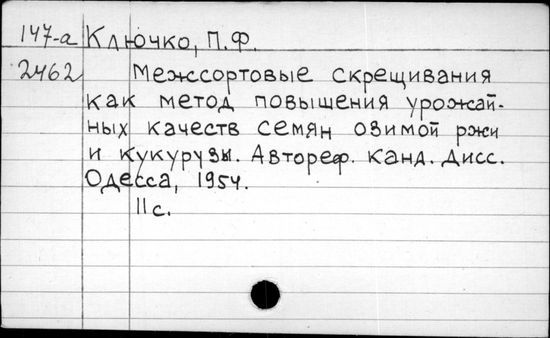 147-а Ключко, П.Ф.
2462 Межсортовые скрещивания
как метод повышения урожай-
ных качеств семян озимой ржи
и кукурузы. Автореф. канд. дисс.
Одесса, 1954.
11 с.